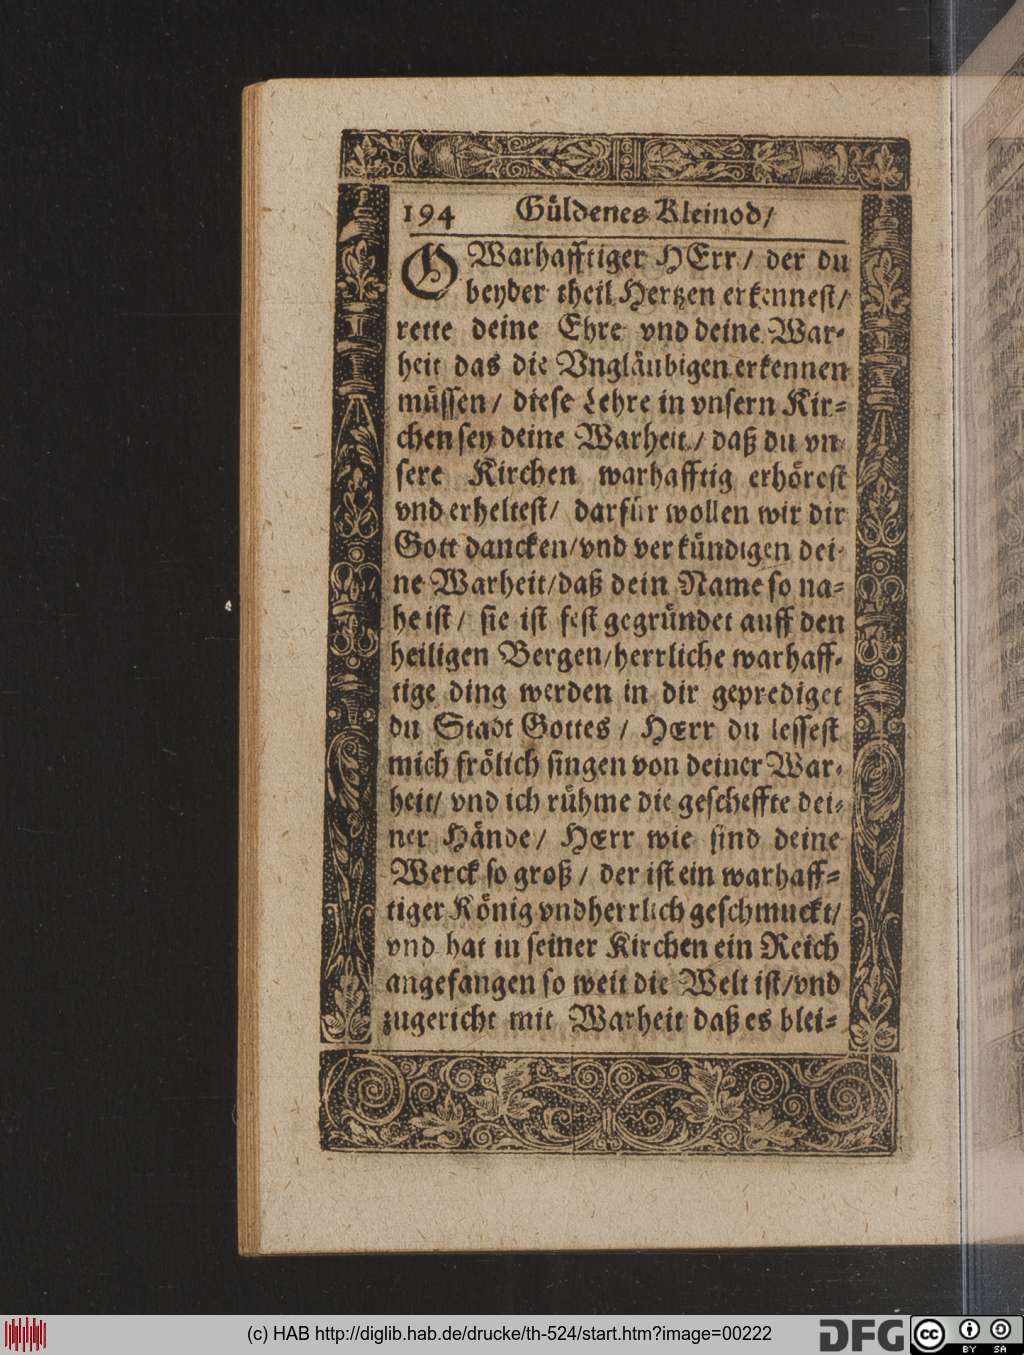 194 Güldenes Kleinod/
O Warhafftiger HErr/ der du
beyder theil Hertzen erkennest/
rette deine Ehre vnd deine War-
heit das die Vngläubigen erkennen
müssen/ diese Lehre in vnsern Kir-
chen sey deine Warheit/ daß du vn-
sere Kirchen warhafftig erhörest
vnd erheltest/ darfür wollen wir dir
Gott dancken/vnd verkündigen dei-
ne Warheit/daß dein Name so na-
he ist/ sie ist fest gegründet auff den
heiligen Bergen/herrliche warhaff-
tige ding werden in dir geprediget
du Stadt Gottes / HErr du lessest
mich frölich singen von deiner War-
heit/ vnd ich rühme die gescheffte dei-
ner Hände/ HErr wie sind deine
Werck so groß / der ist ein warhaff-
tiger König vnd herrlich geschmuckt/
vnd hat in seiner Kirchen ein Reich
angefangen so weit die Welt ist/vnd
zugericht mit Warheit daß es blei-
(c) HAB http://diglib.hab.de/drucke/th-524/start.htm?image=00222
DFG
cc BY SA